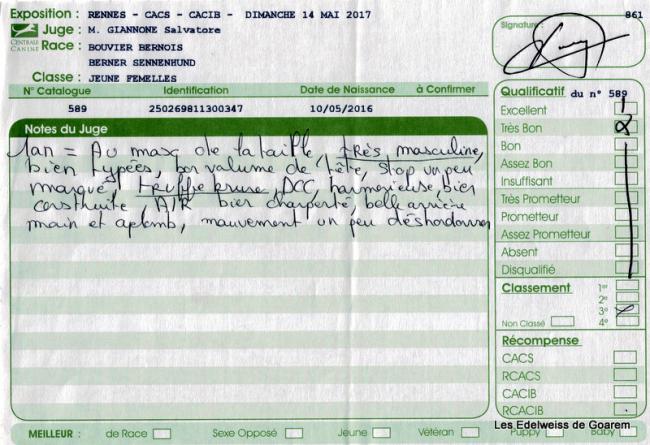 Exposition : RENNES - CACS - CACIB - DIMANCHE 14 MAI 2017
Juge : M. GIANNONE Salvatore
CENTRALE CANINE
Race : BOUVIER BERNOIS
BERNER SENNENHUND
Classe : JEUNE FEMELLES
Signature
861
N° Catalogue Identification Date de Naissance à Confirmer
589 250269811300347 10/05/2016
Notes du Juge
1an = Au max de la taille, très masculine,
bien typées, bon volume de tête, stop un peu
marqué, truffe brune, DCC, harmonieuse, bien
construite A/R bien charpenté, belle arrière
main et aplomb, mauvement un peu déshordonner
Qualificatif du n° 589
Excellent
Très Bon
Bon
Assez Bon
Insuffisant
Très Prometteur
Prometteur
Assez Prometteur
Absent
Disqualifié
Classement 1er
2e
3e
Non Classé 4e
Récompense
CACS
RCACS
CACIB
RCACIB
Les Edelweiss de Goarem
MEILLEUR : de Race Sexe Opposé Jeune Vétéran Puppy Baby